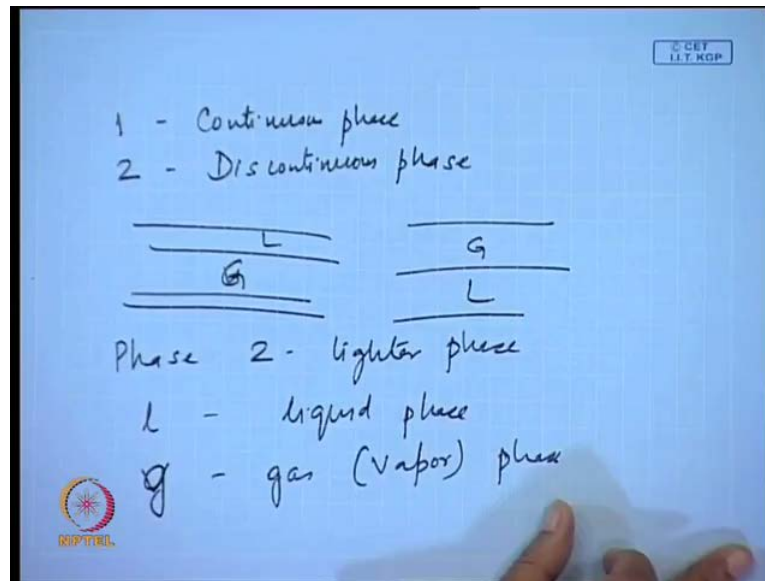 © CET
I.I.T. KGP
1 - Continuous phase
2 - Discontinuous phase
L G
G L
Phase 2 - lighter phase
l - liquid phase
g - gas (vapor) phase
NPTEL